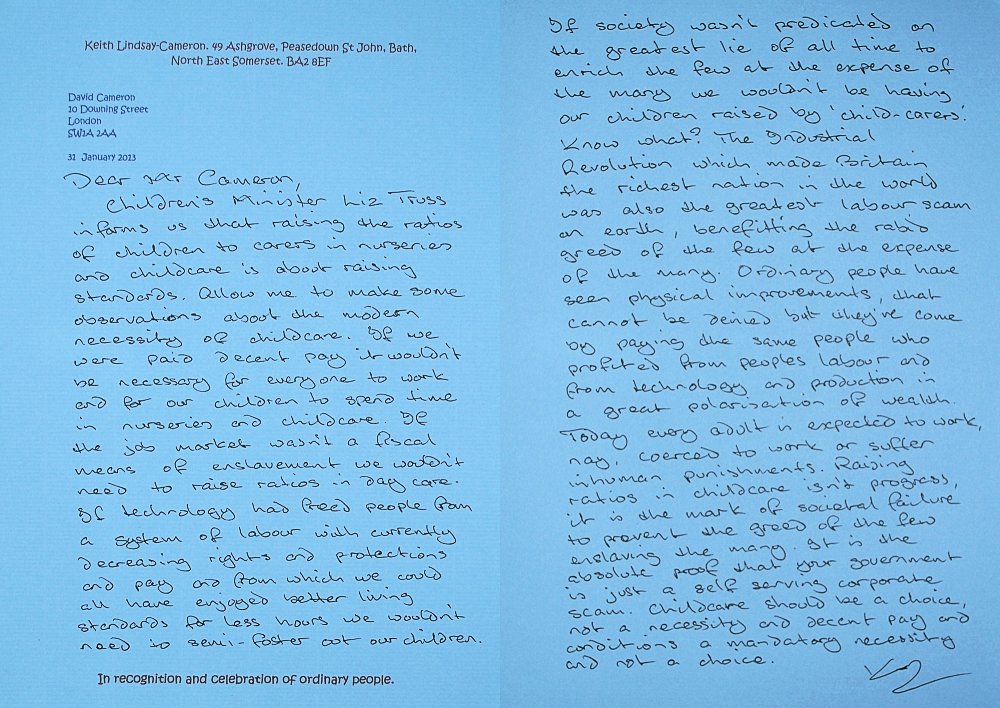 Keith Lindsay-Cameron. 49 Ashgrove, Peasedown St John, Bath,
North East Somerset. BA2 8EF
David Cameron
10 Downing Street
London
SW1A 2AA
31 January 2013
Dear Mr Cameron,
Children's Minister Liz Truss
informs us that raising the ratios
of children to carers in nurseries
and childcare is about raising
standards. Allow me to make some
observations about the modern
necessity of childcare. If we
were paid decent pay it wouldn't
be necessary for everyone to work
and for our children to spend time
in nurseries and childcare. If
the job market wasn't a fiscal
means of enslavement we wouldn't
need to raise ratios in day care.
If technology had freed people from
a system of labour with currently
decreasing rights and protections
and pay and from which we could
all have enjoyed better living
standards for less hours we wouldn't
need to semi-foster out our children.
In recognition and celebration of ordinary people.
If society wasn't predicated on
the greatest lie of all time to
enrich the few at the expense of
the many we wouldn't be having
our children raised by 'child-carers'.
Know what? The Industrial
Revolution which made Britain
the richest nation in the world
was also the greatest labour scam
on earth, benefitting the rabid
greed of the few at the expense
of the many. Ordinary people have
seen physical improvements, that
cannot be denied but they've come
by paying the same people who
profited from peoples labour and
from technology and production in
a great polarisation of wealth.
Today every adult is expected to work,
nay, coerced to work or suffer
inhuman punishments. Raising
ratios in childcare isn't progress,
it is the mark of societal failure
to prevent the greed of the few
enslaving the many. It is the
absolute proof that your government
is just a self serving corporate
scam. Childcare should be a choice,
not a necessity and decent pay and
conditions a mandatory necessity
and not a choice.